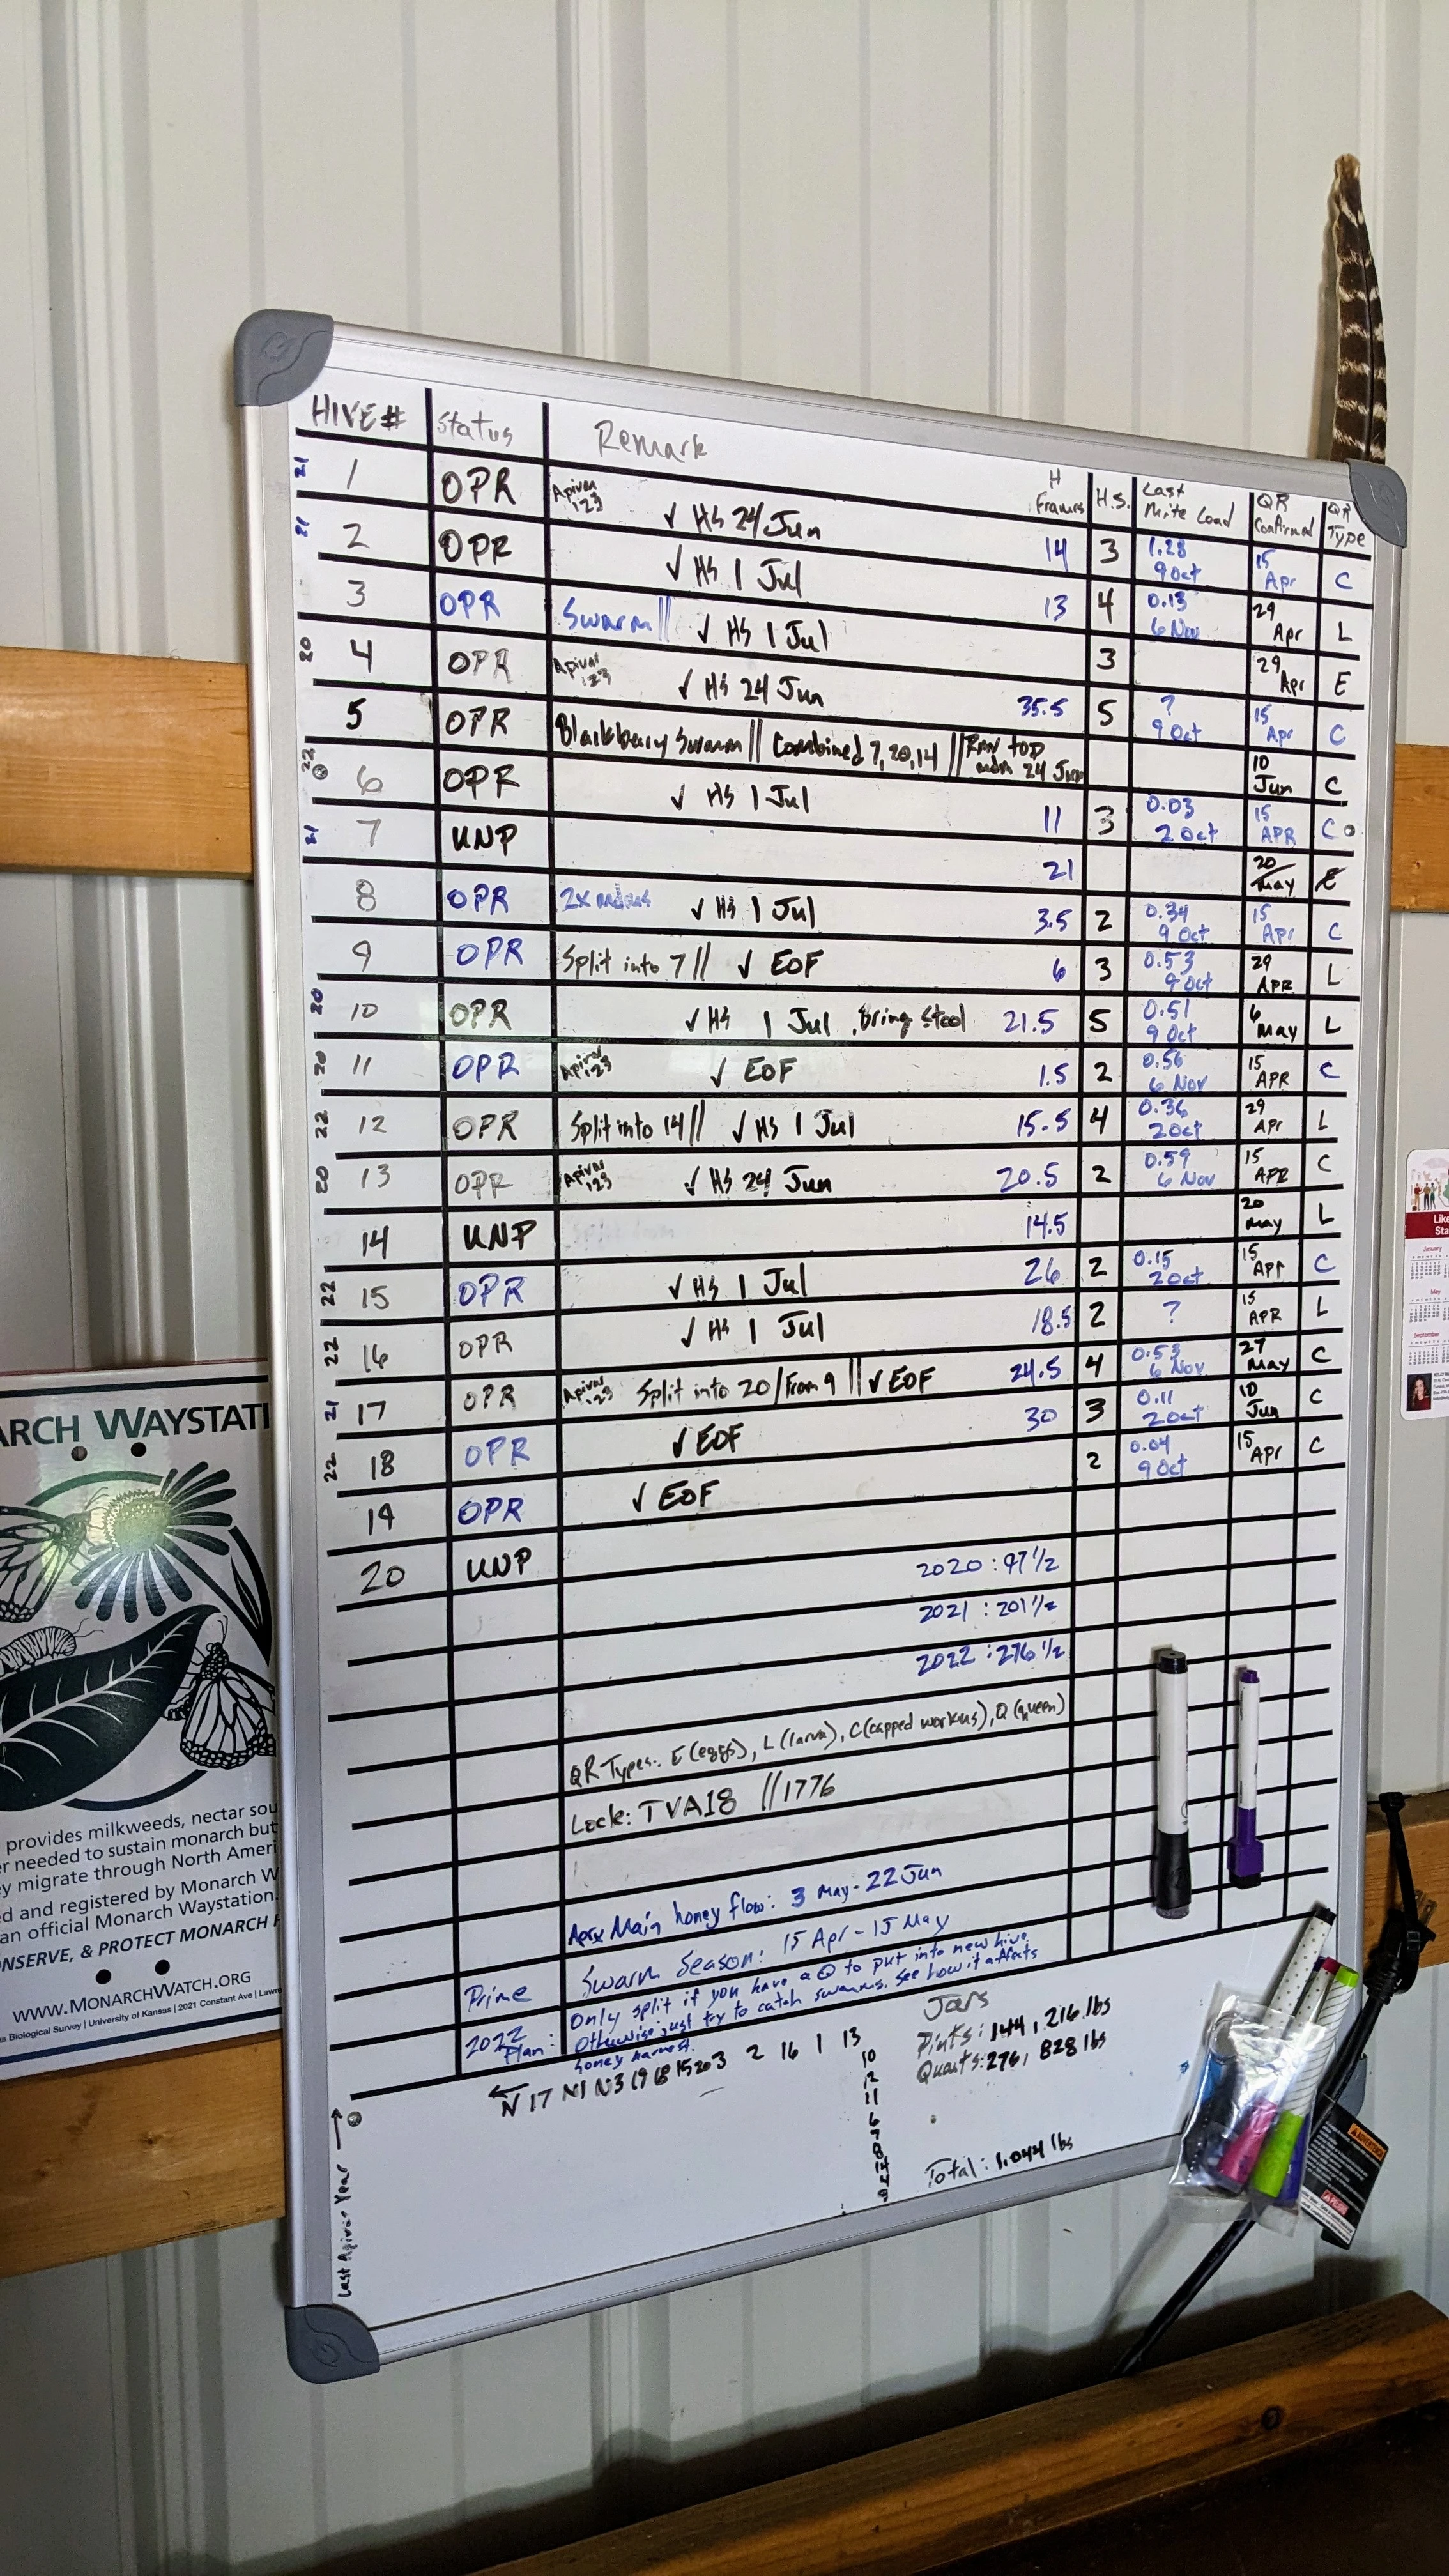 HIVE# Status Remark H Frames H.S. Last Mite Load QR Confirmed QR Type
21 1 OPR Apivar 123 ✓ HS 24 Jun 14 3 1.28 9 Oct 15 Apr C
21 2 OPR ✓ HS 1 Jul 13 4 0.13 6 Nov 29 Apr L
3 OPR Swarm || ✓ HS 1 Jul 3 29 Apr E
20 4 OPR Apivar 123 ✓ HS 24 Jun 35.5 5 ? 9 Oct 15 Apr C
5 OPR Blackberry Swarm || Combined 7, 20, 14 || 24 Jun 10 Jun C
22 6 OPR ✓ HS 1 Jul 11 3 0.03 2 Oct 15 APR C
21 7 UNP 21 20 May E
8 OPR 2x ✓ HS 1 Jul 3.5 2 0.34 9 Oct 15 Apr C
9 OPR Split into 7 || ✓ EOF 6 3 0.53 9 Oct 29 APR L
20 10 OPR ✓ HS 1 Jul, Bring Stool 21.5 5 0.51 9 Oct 6 May L
20 11 OPR Apivar 123 ✓ EOF 1.5 2 0.56 6 Nov 15 APR C
22 12 OPR Split into 14 || ✓ HS 1 Jul 15.5 4 0.36 2 Oct 29 Apr L
20 13 OPR Apivar 123 ✓ HS 24 Jun 20.5 2 0.59 6 Nov 15 APR C
14 UNP 14.5 20 May L
22 15 OPR ✓ HS 1 Jul 26 2 0.15 2 Oct 15 Apr C
22 16 OPR ✓ HS 1 Jul 18.5 2 ? 15 APR L
21 17 OPR Apivar 123 Split into 20 / From 9 || ✓ EOF 24.5 4 0.53 6 Nov 27 May C
22 18 OPR ✓ EOF 30 3 0.11 2 Oct 10 Jun C
19 OPR ✓ EOF 2 0.04 9 Oct 15 Apr C
20 UNP
2020 : 97 1/2
2021 : 201 1/2
2022 : 276 1/2
QR Types: E (eggs), L (larva), C (capped workers), Q (queen)
Lock: TVA18 || 1776
Main honey flow: 3 May - 22 Jun
Prime Swarm Season: 15 Apr - 15 May
2022 Plan: Only split if you have a Q to put into new hive.
Otherwise just try to catch swarms. See how it affects
honey harvest.
← N 17 N1 N3 19 18 15 20 3 2 16 1 13
10
12
11
6
7
8
14
4
9
Jars
Pints: 144, 216 lbs
Quarts: 276, 828 lbs
Total: 1,044 lbs
Last Apivar Year →
ARCH WAYSTATI
provides milkweeds, nectar sou
er needed to sustain monarch but
ey migrate through North Ameri
ed and registered by Monarch W
an official Monarch Waystation.
NSERVE, & PROTECT MONARCH
WWW.MONARCHWATCH.ORG
s Biological Survey | University of Kansas | 2021 Constant Ave | Lawr
Like
Sta
January
May
September